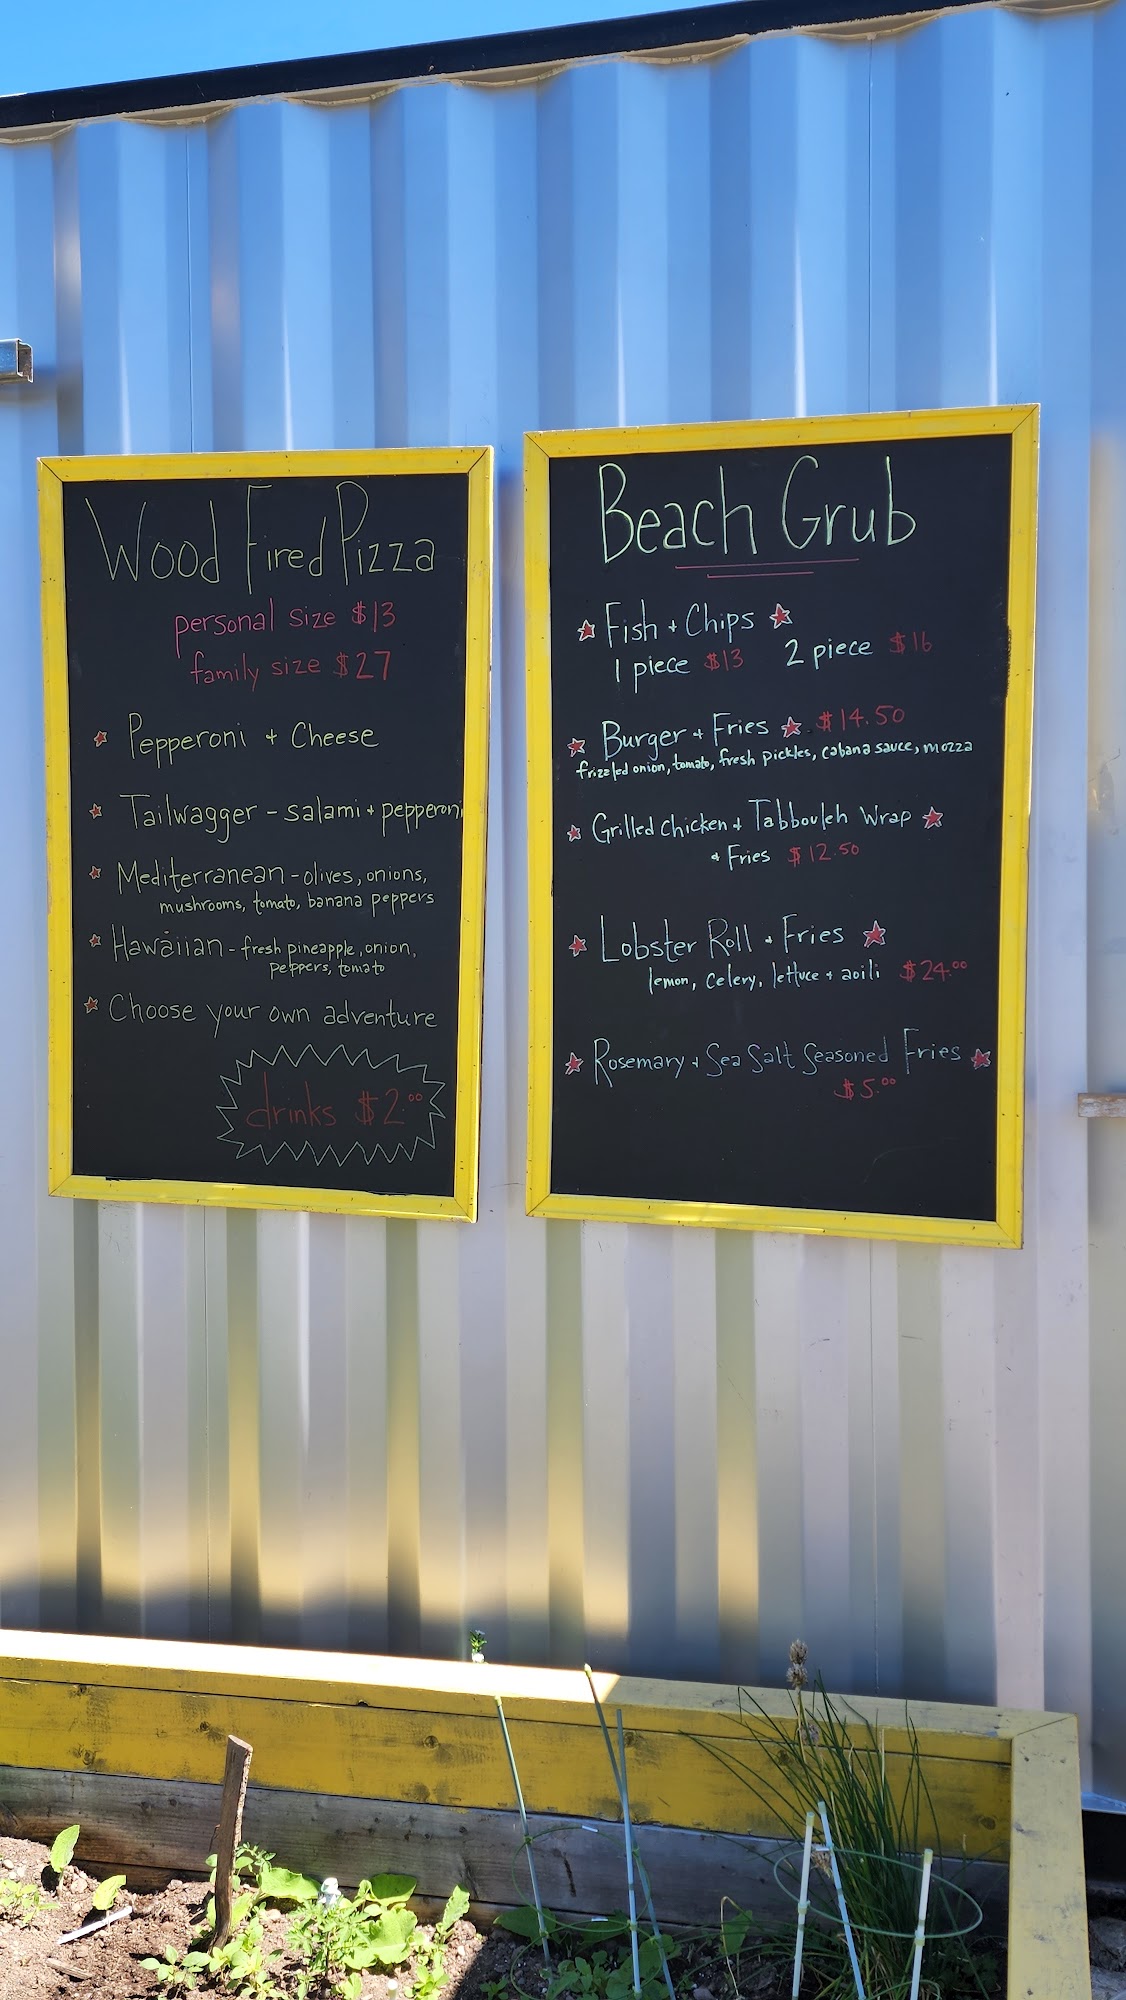 Wood Fired Pizza
personal size $13
family size $27
Pepperoni + Cheese
Tailwagger - salami + pepperoni
Mediterranean - olives, onions,
mushrooms, tomato, banana peppers
Hawaiian - fresh pineapple, onion,
peppers, tomato
Choose your own adventure
drinks $2.00
Beach Grub
Fish + Chips
1 piece $13 2 piece $16
Burger + Fries $14.50
frizzled onion, tomato, fresh pickles, cabana sauce, mozza
Grilled Chicken + Tabbouleh Wrap
+ Fries $12.50
Lobster Roll + Fries
lemon, celery, lettuce + aoili $24.00
Rosemary + Sea Salt Seasoned Fries
$5.00